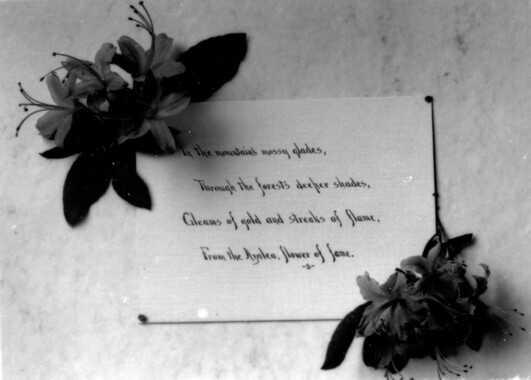 In the mountain's mossy glades,
Through the forest's deeper shades,
Gleams of gold and streaks of flame,
From the Azalea, flower of fame.